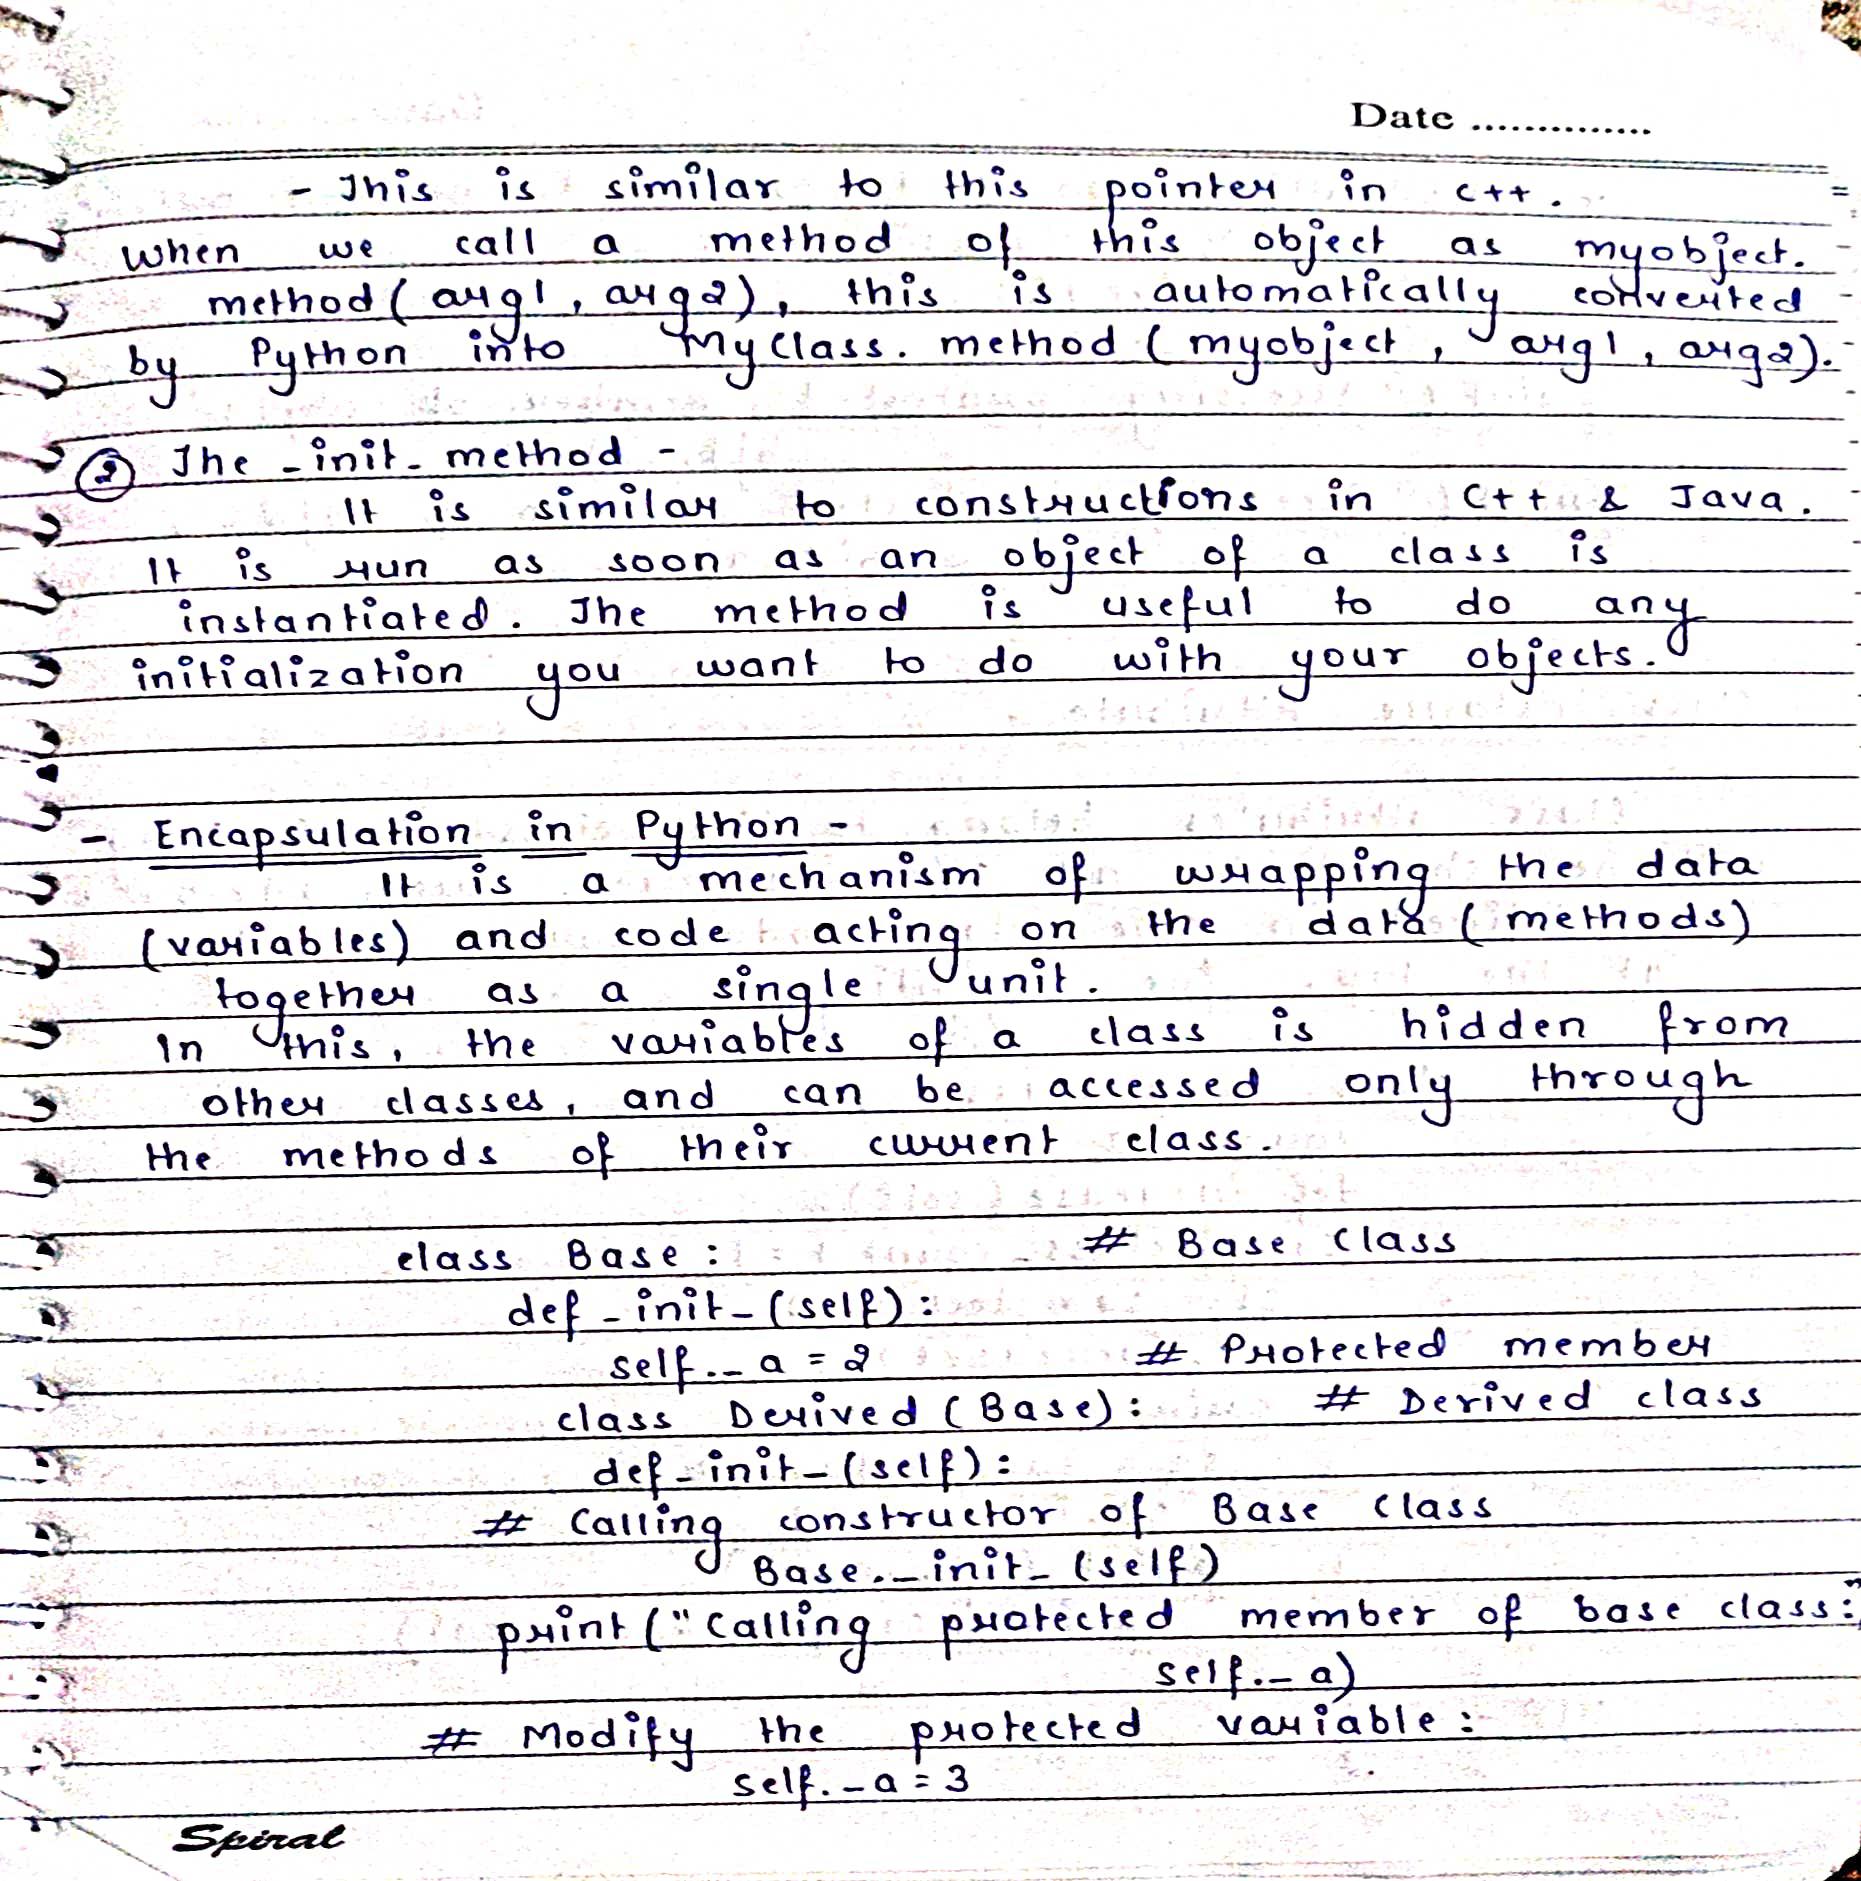 Date ...............
- This is similar to this pointer in c++.
when we call a method of this object as myobject.
method (arg1, arg2), this is automatically converted
by Python into MyClass. method (myobject, arg1, arg2).
② The _init_ method -
It is similar to constructions in C++ & Java.
It is run as soon as an object of a class is
instantiated. The method is useful to do any
initialization you want to do with your objects.
- Encapsulation in Python -
It is a mechanism of wrapping the data
(variables) and code acting on the data (methods)
together as a single unit.
In this, the variables of a class is hidden from
other classes, and can be accessed only through
the methods of their current class.
class Base: # Base Class
def _init_(self):
self._a = 2 # Protected member
class Derived (Base): # Derived class
def _init_(self):
# Calling constructor of Base Class
Base._init_ (self)
print ("Calling protected member of base class:"
self._a)
# Modify the protected variable:
self._a = 3
Spiral